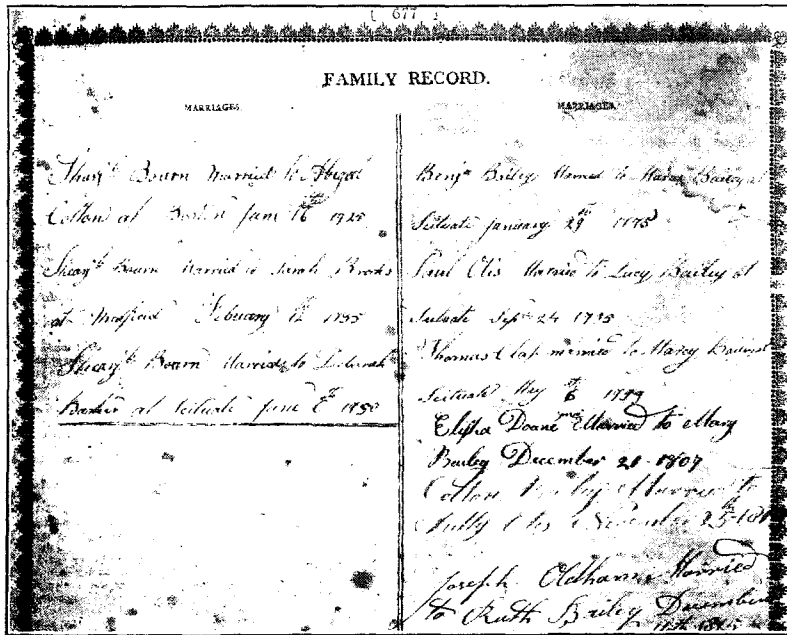 ( 677 )
FAMILY RECORD.
MARRIAGES.
Shearj<sup>b</sup> Bourn Married to Abigal
Cotton at Boston June 16<sup>th</sup> 1725
Shearj<sup>b</sup> Bourn Married to Sarah Brooks
at Medford February 12<sup>th</sup> 1735
Shearj<sup>b</sup> Bourn Married to Deborah
Barker at Scituate June 6<sup>th</sup> 1750
MARRIAGES
Benj<sup>a</sup> Bailey Married to Bailey at
Scituate January 29<sup>th</sup> 1775
Paul Otis Married to Lucy Bailey at
Scituate Sep<sup>t</sup> 24
Thomas Clap married to Marcy
Scituate May 6<sup>th</sup>
Elisha Doane Married to Mary
Bailey December 21 1807
Cotton Bailey Married to
Otis November 25<sup>th</sup>
Joseph Oldham Married
to Ruth Bailey December
11th 1815